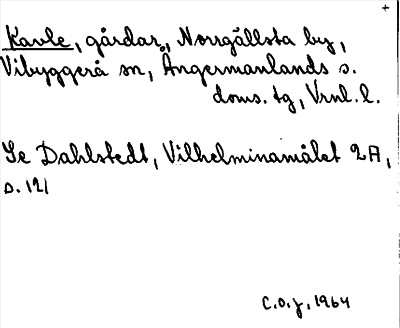 +
Kavle, gårdar, Norrgällsta by,
Vibyggerå sn, Ångermanlands s.
doms. tg, Vrnl. l.
Se Dahlstedt, Vilhelminamålet 2A,
s. 121
C.O.J., 1964